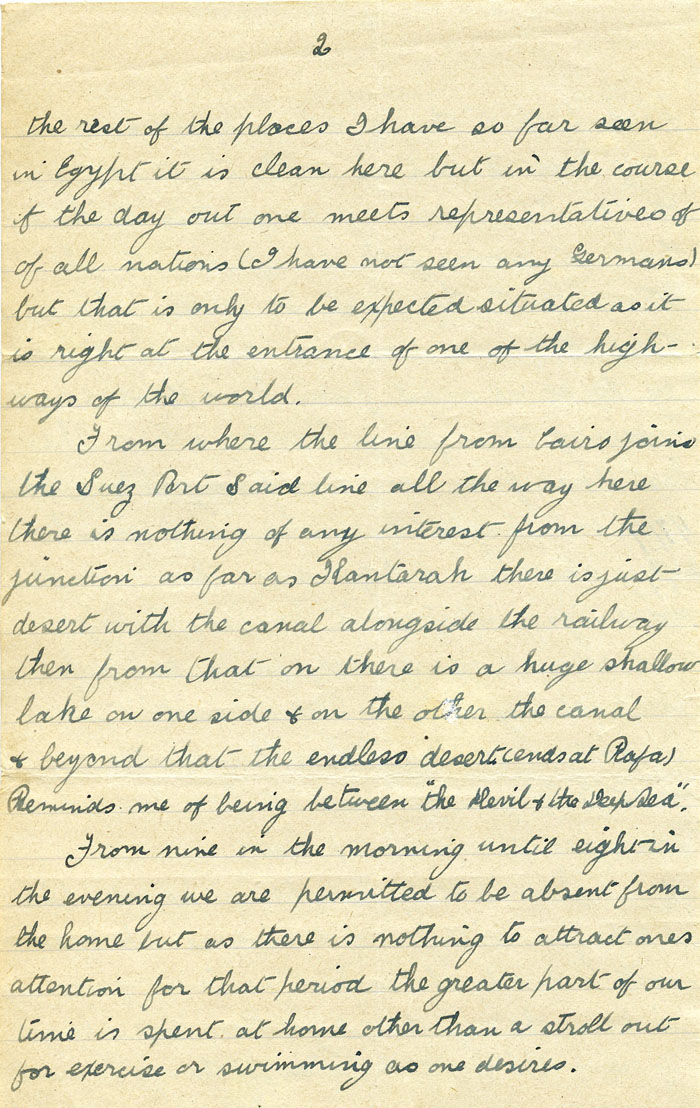 2
the rest of the places I have so far seen
in Egypt it is clean here but in the course
of the day out one meets representatives of
of all nations (I have not seen any Germans)
but that is only to be expected situated as it
is right at the entrance of one of the high-
ways of the world.
From where the line from Cairo joins
the Suez Port Said line all the way here
there is nothing of any interest from the
junction as far as Kantarah there is just
desert with the canal alongside the railway
then from that on there is a huge shallow
lake on one side & on the other the canal
& beyond that the endless desert (ends at Rafa)
Reminds me of being between "the Devil & the Deep Sea".
From nine in the morning until eight in
the evening we are permitted to be absent from
the home but as there is nothing to attract ones
attention for that period the greater part of our
time is spent at home other than a stroll out
for exercise or swimming as one desires.